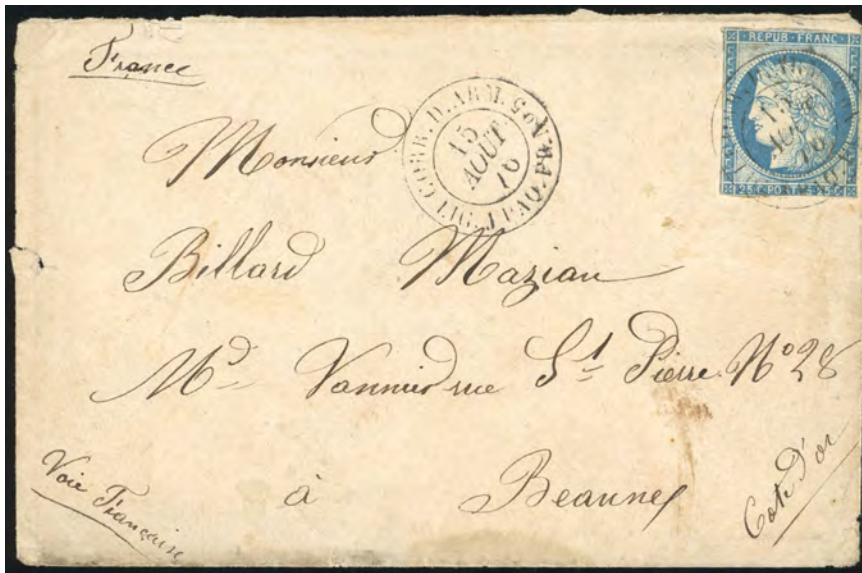 REPUB·FRANC
25 c·POSTES·25 c
France
CORR. D. ARM. PAQ. FR. No 5
15
AOUT
76
15
AOU
76
Monsieur
Billard Mazian
Md Vannier rue St Pierre No 28
à Beaune
Cote d'or
Voie Française